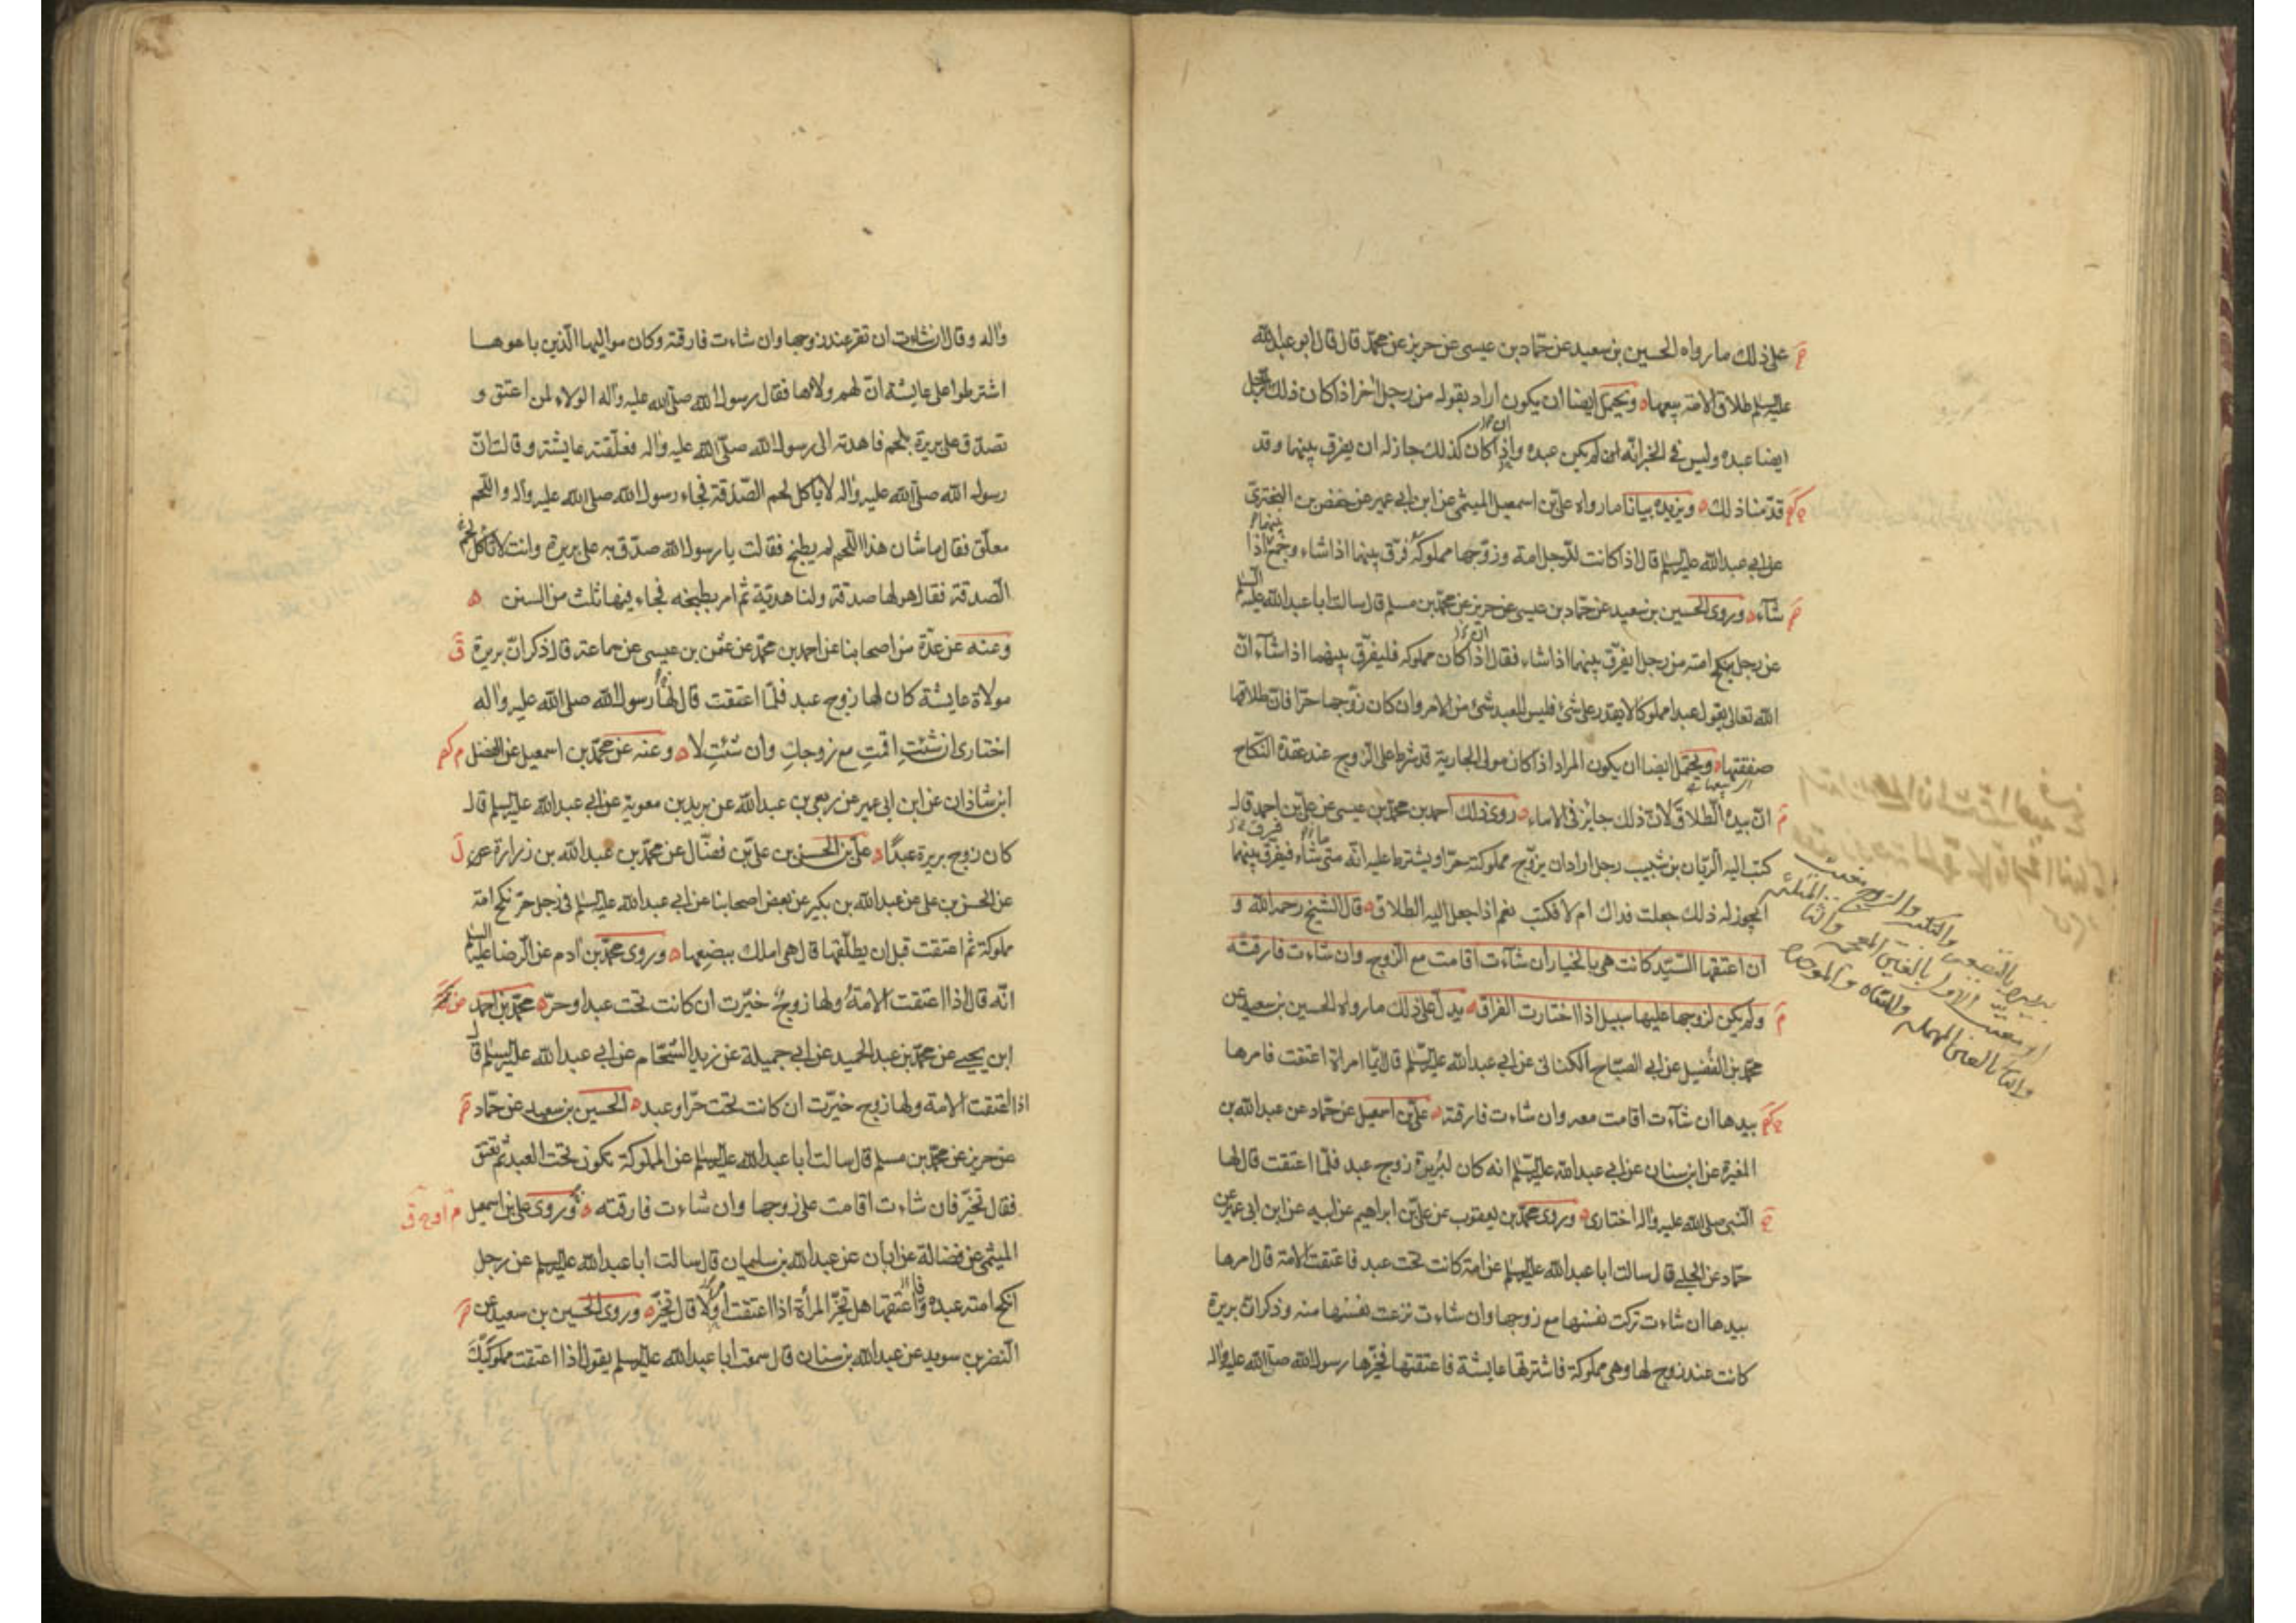 على ذلك ما رواه الحسين بن سعيد عن حمّاد بن عيسى عن حريز عن محمّد قال قال ابو عبد الله
عليه السلم طلاق الامة بيعها ويحتمل ايضا ان يكون اراد بقوله من رجل اخر اذا كان ذلك الرجل
ايضا عبده وليس في الخبر انّه لم يكن عبده واذا كان كذلك جاز له ان يفرق بينهما وقد
قدّمنا ذلك ويزيده بيانا ما رواه علي بن اسمعيل الميثمي عن ابن ابي عمير عن حفص بن البختري
عن ابي عبد الله عليه السلم قال اذا كانت للرجل امة وزوّجها مملوكه فرّق بينهما اذا شاء وجمع بينهما اذا
شاء وروى الحسين بن سعيد عن حمّاد بن عيسى عن حريز عن محمّد بن مسلم قال سالت ابا عبد الله عليه السلم
عن رجل ينكح امته من رجل ايفرّق بينهما اذا شاء فقال ان كان مملوكه فليفرّق بينهما اذا شاء انّ
الله تعالى يقول عبدا مملوكا لا يقدر على شئ فليس للعبد شئ من الامر وان كان زوجها حرّا فان طلاقها
صفقتها ويحتمل ايضا ان يكون المراد اذا كان مولى الجارية قد شرط على الزوج عند عقدة النكاح
انّ بيده الطلاق لانّ ذلك جايز في الاماء روى ذلك احمد بن محمّد بن عيسى عن علي بن احمد قال
كتب اليه الريّان بن شبيب رجل اراد ان يزوّج مملوكته حرّا ويشترط عليه انّه متى شاء فيفرق بينهما
ايجوز له ذلك جعلت فداك ام لا فكتب نعم اذا جعل اليه الطلاق قال الشيخ رحمه الله و
ان اعتقها السيّد كانت هي بالخيار ان شاءت اقامت مع الزوج وان شاءت فارقته
ولم يكن لزوجها عليها سبيل اذا اختارت الفراق يدل على ذلك ما رواه الحسين بن سعيد عن
محمّد بن الفضيل عن ابي الصباح الكناني عن ابي عبد الله عليه السلم قال ايّما امراة اعتقت فامرها
بيدها ان شاءت اقامت معه وان شاءت فارقته علي بن اسمعيل عن حمّاد عن عبد الله بن
المغيرة عن ابن سنان عن ابي عبد الله عليه السلم انه كان لبريرة زوج عبد فلمّا اعتقت قال لها
النبي صلى الله عليه واله اختاري وروى محمّد بن يعقوب عن علي بن ابراهيم عن ابيه عن ابن ابي عمير عن
حمّاد عن الحلبي قال سالت ابا عبد الله عليه السلم عن امة كانت تحت عبد فاعتقت الامة قال امرها
بيدها ان شاءت تركت نفسها مع زوجها وان شاءت نزعت نفسها منه وذكر ان بريرة
كانت عند زوج لها وهي مملوكة فاشترتها عايشة فاعتقتها فخيّرها رسول الله صلى الله عليه واله
واله وقال ان شاءت ان تقر عند زوجها وان شاءت فارقته وكان مواليها الّذين باعوها
اشترطوا على عايشة انّ لهم ولاءها فقال رسول الله صلى الله عليه واله الولاء لمن اعتق و
تصدّق على بريرة بلحم فاهدته الى رسول الله صلى الله عليه واله فعلّقته عايشة وقالت انّ
رسول الله صلى الله عليه واله لا ياكل لحم الصدقة فجاء رسول الله صلى الله عليه واله واللحم
معلّق فقال ما شان هذا اللحم لم يطبخ فقالت يا رسول الله صدّق به على بريرة وانت لا تاكل لحم
الصدقة فقال هو لها صدقة ولنا هديّة ثم امر بطبخه فجاء فيها ثلث من السنن
وعنه عن عدّة من اصحابنا عن احمد بن محمّد عن عثمن بن عيسى عن سماعة قال ذكر انّ بريرة
مولاة عايشة كان لها زوج عبد فلمّا اعتقت قال لها رسول الله صلى الله عليه واله
اختاري ان شئتِ اقمتِ مع زوجك وان شئتِ لا وعنه عن محمّد بن اسمعيل عن الفضل
ابن شاذان عن ابن ابي عمير عن ربعي بن عبد الله عن بريد بن معوية عن ابي عبد الله عليه السلم قال
كان زوج بريرة عبدًا علي بن الحسن بن علي بن فضّال عن محمّد بن عبد الله بن زرارة عن
عن الحسن بن علي عن عبد الله بن بكير عن بعض اصحابنا عن ابي عبد الله عليه السلم في رجل حرّ نكح امة
مملوكة ثم اعتقت قبل ان يطلّقها قال هي املك ببضعها وروى محمّد بن ادم عن الرضا عليه السلم
انّه قال اذا اعتقت الامة ولها زوج خيّرت ان كانت تحت عبد او حرّ محمّد بن احمد
ابن يحيى عن محمّد بن عبد الحميد عن ابي جميلة عن زيد الشحّام عن ابي عبد الله عليه السلم قال
اذا اعتقت الامة ولها زوج خيّرت ان كانت تحت حرّ او عبد الحسين بن سعيد عن حمّاد
عن حريز عن محمّد بن مسلم قال سالت ابا عبد الله عليه السلم عن المملوكة تكون تحت العبد ثم تعتق
فقال تخيّر فان شاءت اقامت على زوجها وان شاءت فارقته وروى علي بن اسمعيل
الميثمي عن فضالة عن ابان عن عبد الله بن سليمان قال سالت ابا عبد الله عليه السلم عن رجل
انكح امته عبده واعتقها هل تخيّر المرأة اذا اعتقت او لا قال تخيّر وروى الحسين بن سعيد عن
النضر بن سويد عن عبد الله بن سنان قال سمعت ابا عبد الله عليه السلم يقول اذا اعتقت مملوكيك